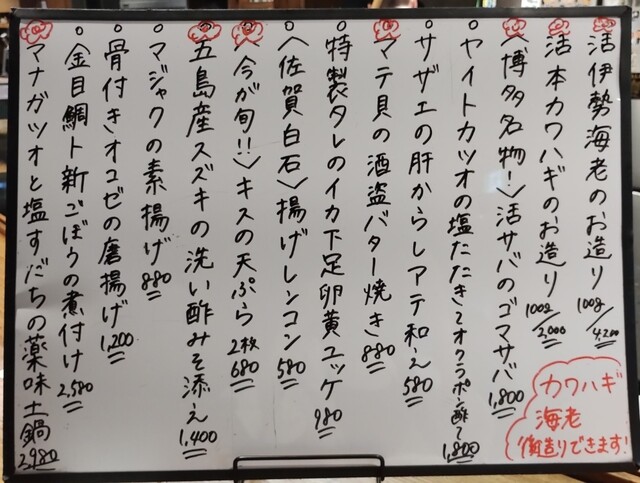 活伊勢海老のお造り 100g/4,200
活本カワハギのお造り 100g/2,000
〈博多名物!〉活サバのゴマサバ 1,800
ヤイトカツオの塩たたき〜オクラポン酢〜 1,800
サザエの肝からしアテ和え 580
マテ貝の酒盗バター焼き 880
特製タレのイカ下足卵黄ユッケ 980
〈佐賀白石〉揚げレンコン 580
〈今が旬!!〉キスの天ぷら 2枚 680
五島産スズキの洗い酢みそ添え 1,400
マジャクの素揚げ 880
骨付きオコゼの唐揚げ 1,200
金目鯛ト新ごぼうの煮付け 2,580
マナガツオと塩すだちの薬味土鍋 2,980
カワハギ
海老
造りできます!